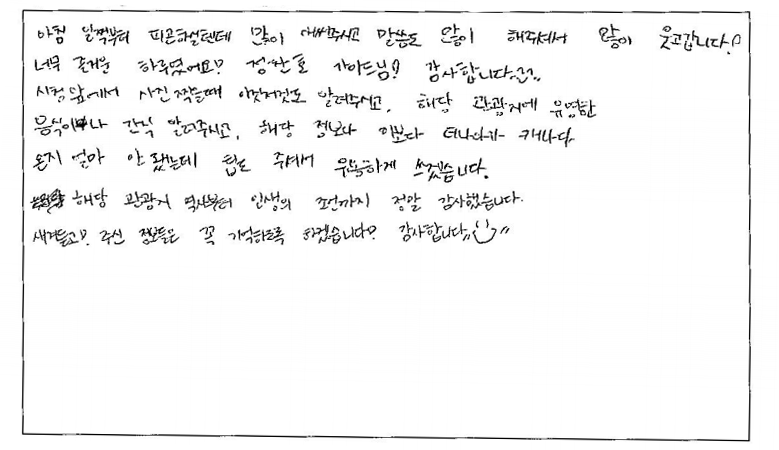 아침 일찍부터 피곤하실텐데 많이 애써주시고 말씀도 많이 해주셔서 많이 웃고갑니다!
너무 즐거운 하루였어요? 정찬호 가이드님? 감사합니다.
시청 앞에서 사진 찍을때 이것저것도 알려주시고, 해당 관광지에 유명한
음식이나 간식 알려주시고, 해당 정보나
온지 얼마 안 됐는데 팁도 주셔서 유용하게 쓰겠습니다.
해당 관광지 역사부터 인생의 조언까지 정말 감사했습니다.
새겨듣고? 주신 정보들은 꼭 기억하도록 하겠습니다? 감사합니다